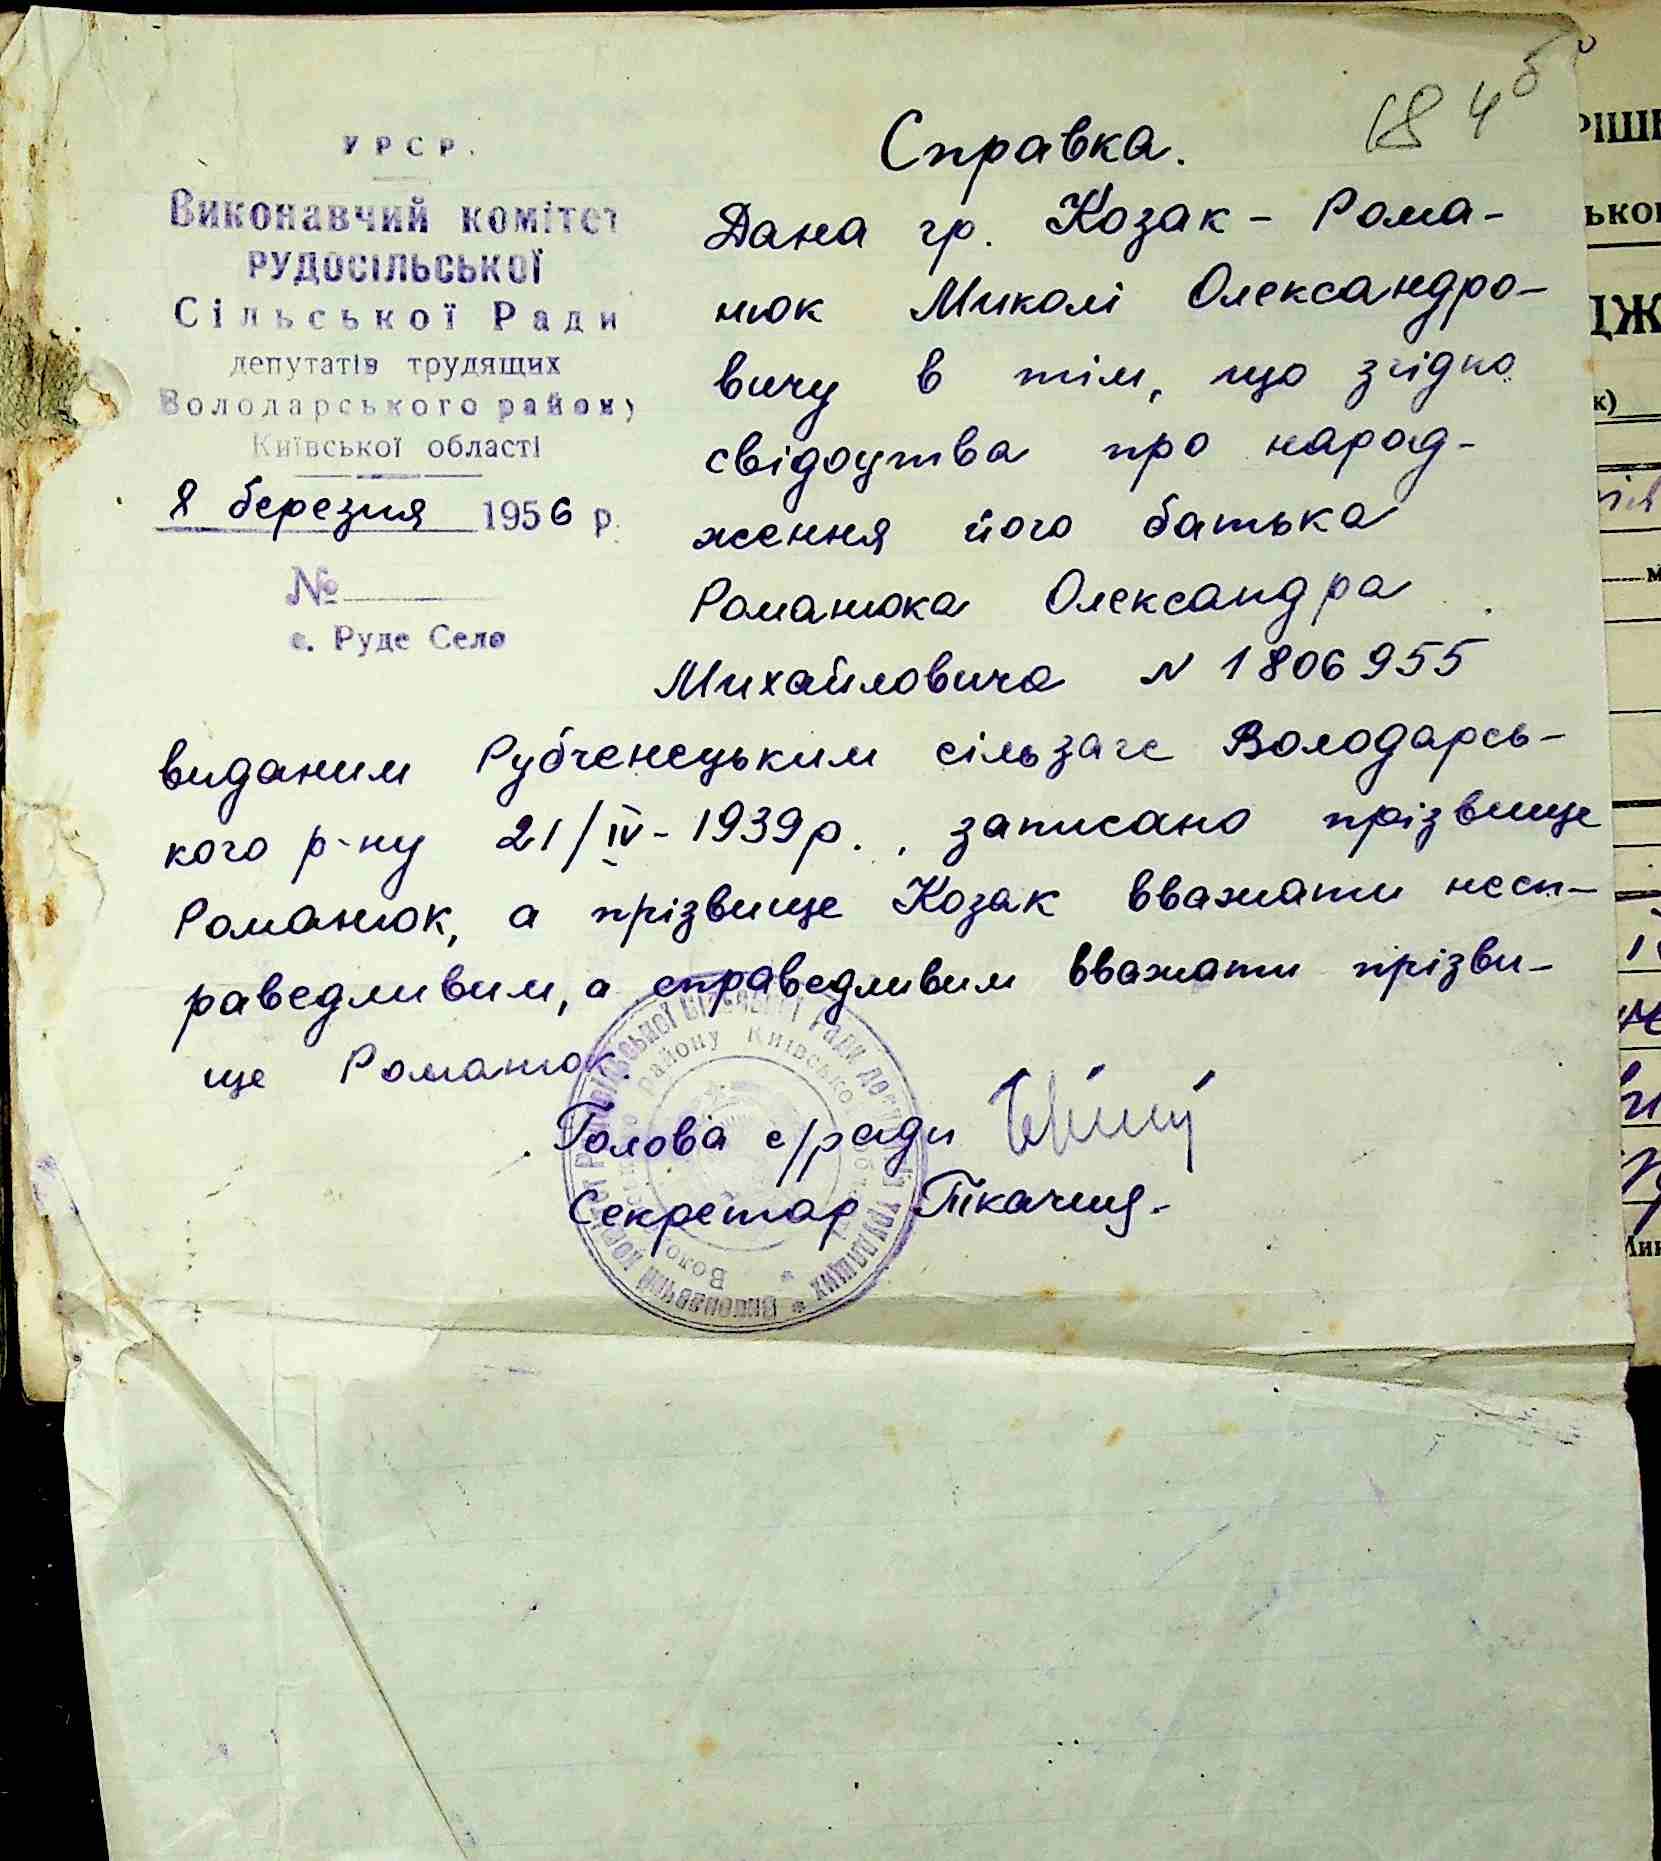 184
У Р С Р.
Виконавчий комітет
РУДОСІЛЬСЬКОЇ
Сільської Ради
депутатів трудящих
Володарського району
Київської області
8 березня 1956 р.
№
с. Руде Село
Справка.
Дана гр. Козак - Рома-
нюк Миколі Олександро-
вичу в тім, що згідно
свідоцтва про народ-
ження його батька
Романюка Олександра
Михайловича N 1806955
виданим Рубченецьким сільзагс Володарсь-
кого р-ну 21/IV - 1939р., записано прізвище
Романюк, а прізвище Козак вважати несп-
раведливим, а справедливим вважати прізви-
ще Романюк.
Голова с/ради
Секретар
Виконавчий Сільської Ради депутатів трудящих
Району Київської